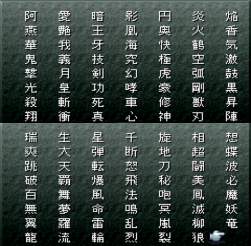 阿愛暗影円炎焔
燕艶王凰奥火香
華我牙海快鶴気
鬼義技究極空激
撃月剣幻虚弧鼓
光皇功哮豪剛黒
殺斬死車修獣昇
翔衝真心神刃陣
瑞生星千旋相想
爽大弾断地超蝶
跳天転怒刀闘波
破覇爆飛秘美必
百舞風法咆鳳魔
無夢命鳴冥滅妖
翼羅雷乱嵐柳竜
龍流輪烈裂狼